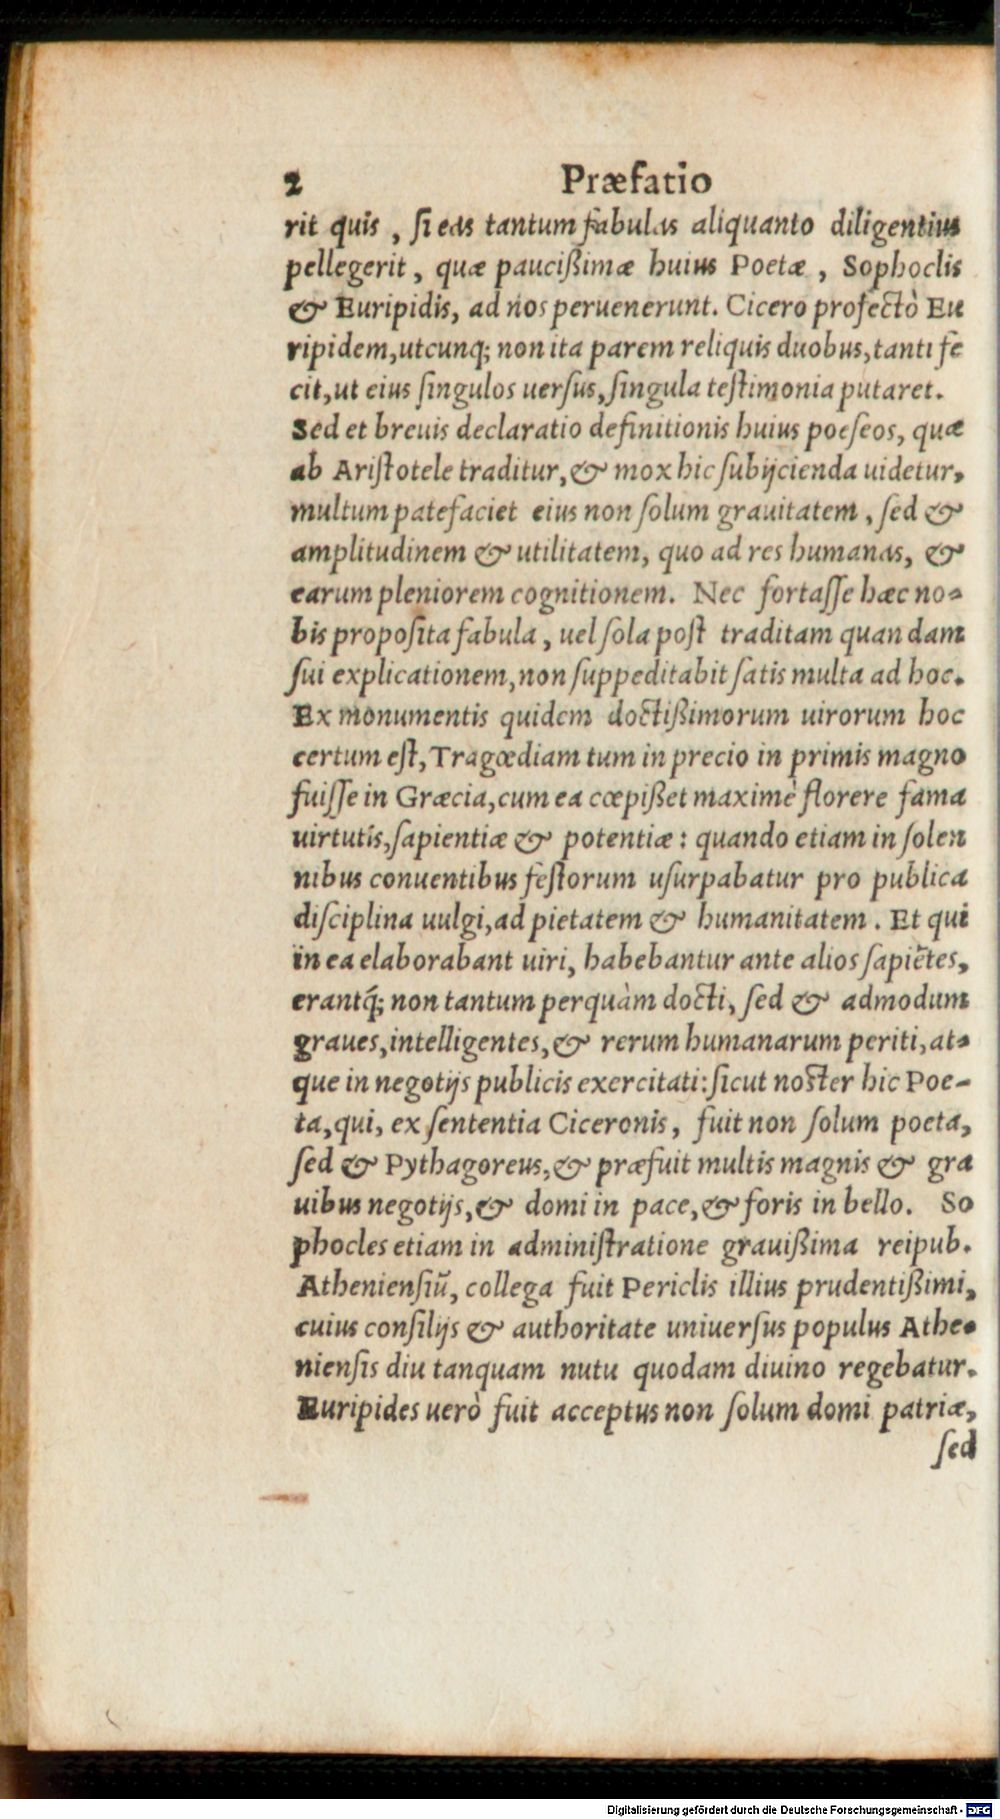 2 Præfatio
rit quis, ſi eas tantum fabulas aliquanto diligentius
pellegerit, quæ pauciſſimæ huius Poetæ, Sophoclis
& Euripidis, ad nos peruenerunt. Cicero profectò Eu
ripidem, utcunq; non ita parem reliquis duobus, tanti fe
cit, ut eius ſingulos uerſus, ſingula teſtimonia putaret.
Sed et breuis declaratio definitionis huius poeſeos, quæ
ab Ariſtotele traditur, & mox hic ſubijcienda uidetur,
multum patefaciet eius non ſolum grauitatem, ſed &
amplitudinem & utilitatem, quo ad res humanas, &
earum pleniorem cognitionem. Nec fortaſſe hæc no-
bis propoſita fabula, uel ſola poſt traditam quandam
ſui explicationem, non ſuppeditabit ſatis multa ad hoc.
Ex monumentis quidem doctißimorum uirorum hoc
certum eſt, Tragœdiam tum in precio in primis magno
fuiſſe in Græcia, cum ea cœpißet maximè florere fama
uirtutis, ſapientiæ & potentiæ: quando etiam in ſolen
nibus conuentibus feſtorum uſurpabatur pro publica
diſciplina uulgi, ad pietatem & humanitatem. Et qui
in ea elaborabant uiri, habebantur ante alios ſapiẽtes,
erantq́; non tantum perquàm docti, ſed & admodum
graues, intelligentes, & rerum humanarum periti, at-
que in negotijs publicis exercitati: ſicut noſter hic Poe-
ta, qui, ex ſententia Ciceronis, fuit non ſolum poeta,
ſed & Pythagoreus, & præfuit multis magnis & gra
uibus negotijs, & domi in pace, & foris in bello. So
phocles etiam in adminiſtratione grauißima reipub.
Athenienſiũ, collega fuit Periclis illius prudentißimi,
cuius conſilijs & authoritate uniuerſus populus Athe-
nienſis diu tanquam nutu quodam diuino regebatur.
Euripides uerò fuit acceptus non ſolum domi patriæ,
ſed
Digitalisierung gefördert durch die Deutsche Forschungsgemeinschaft - DFG